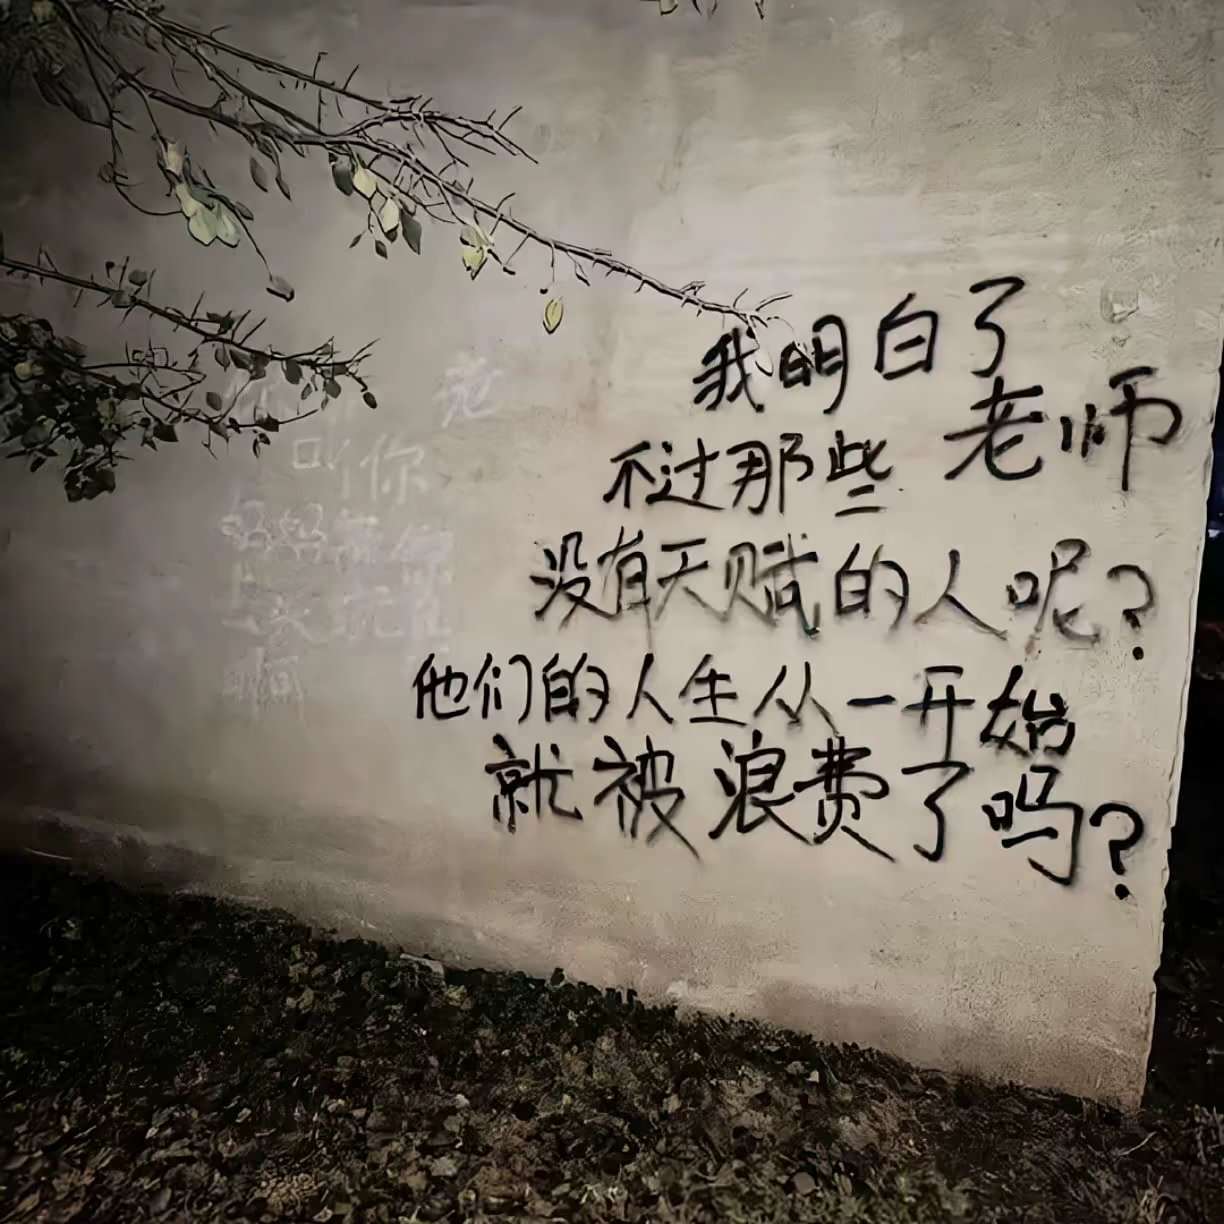 我明白了
老师
不过那些
没有天赋的人呢?
他们的人生从一开始
就被浪费了吗?
叫你